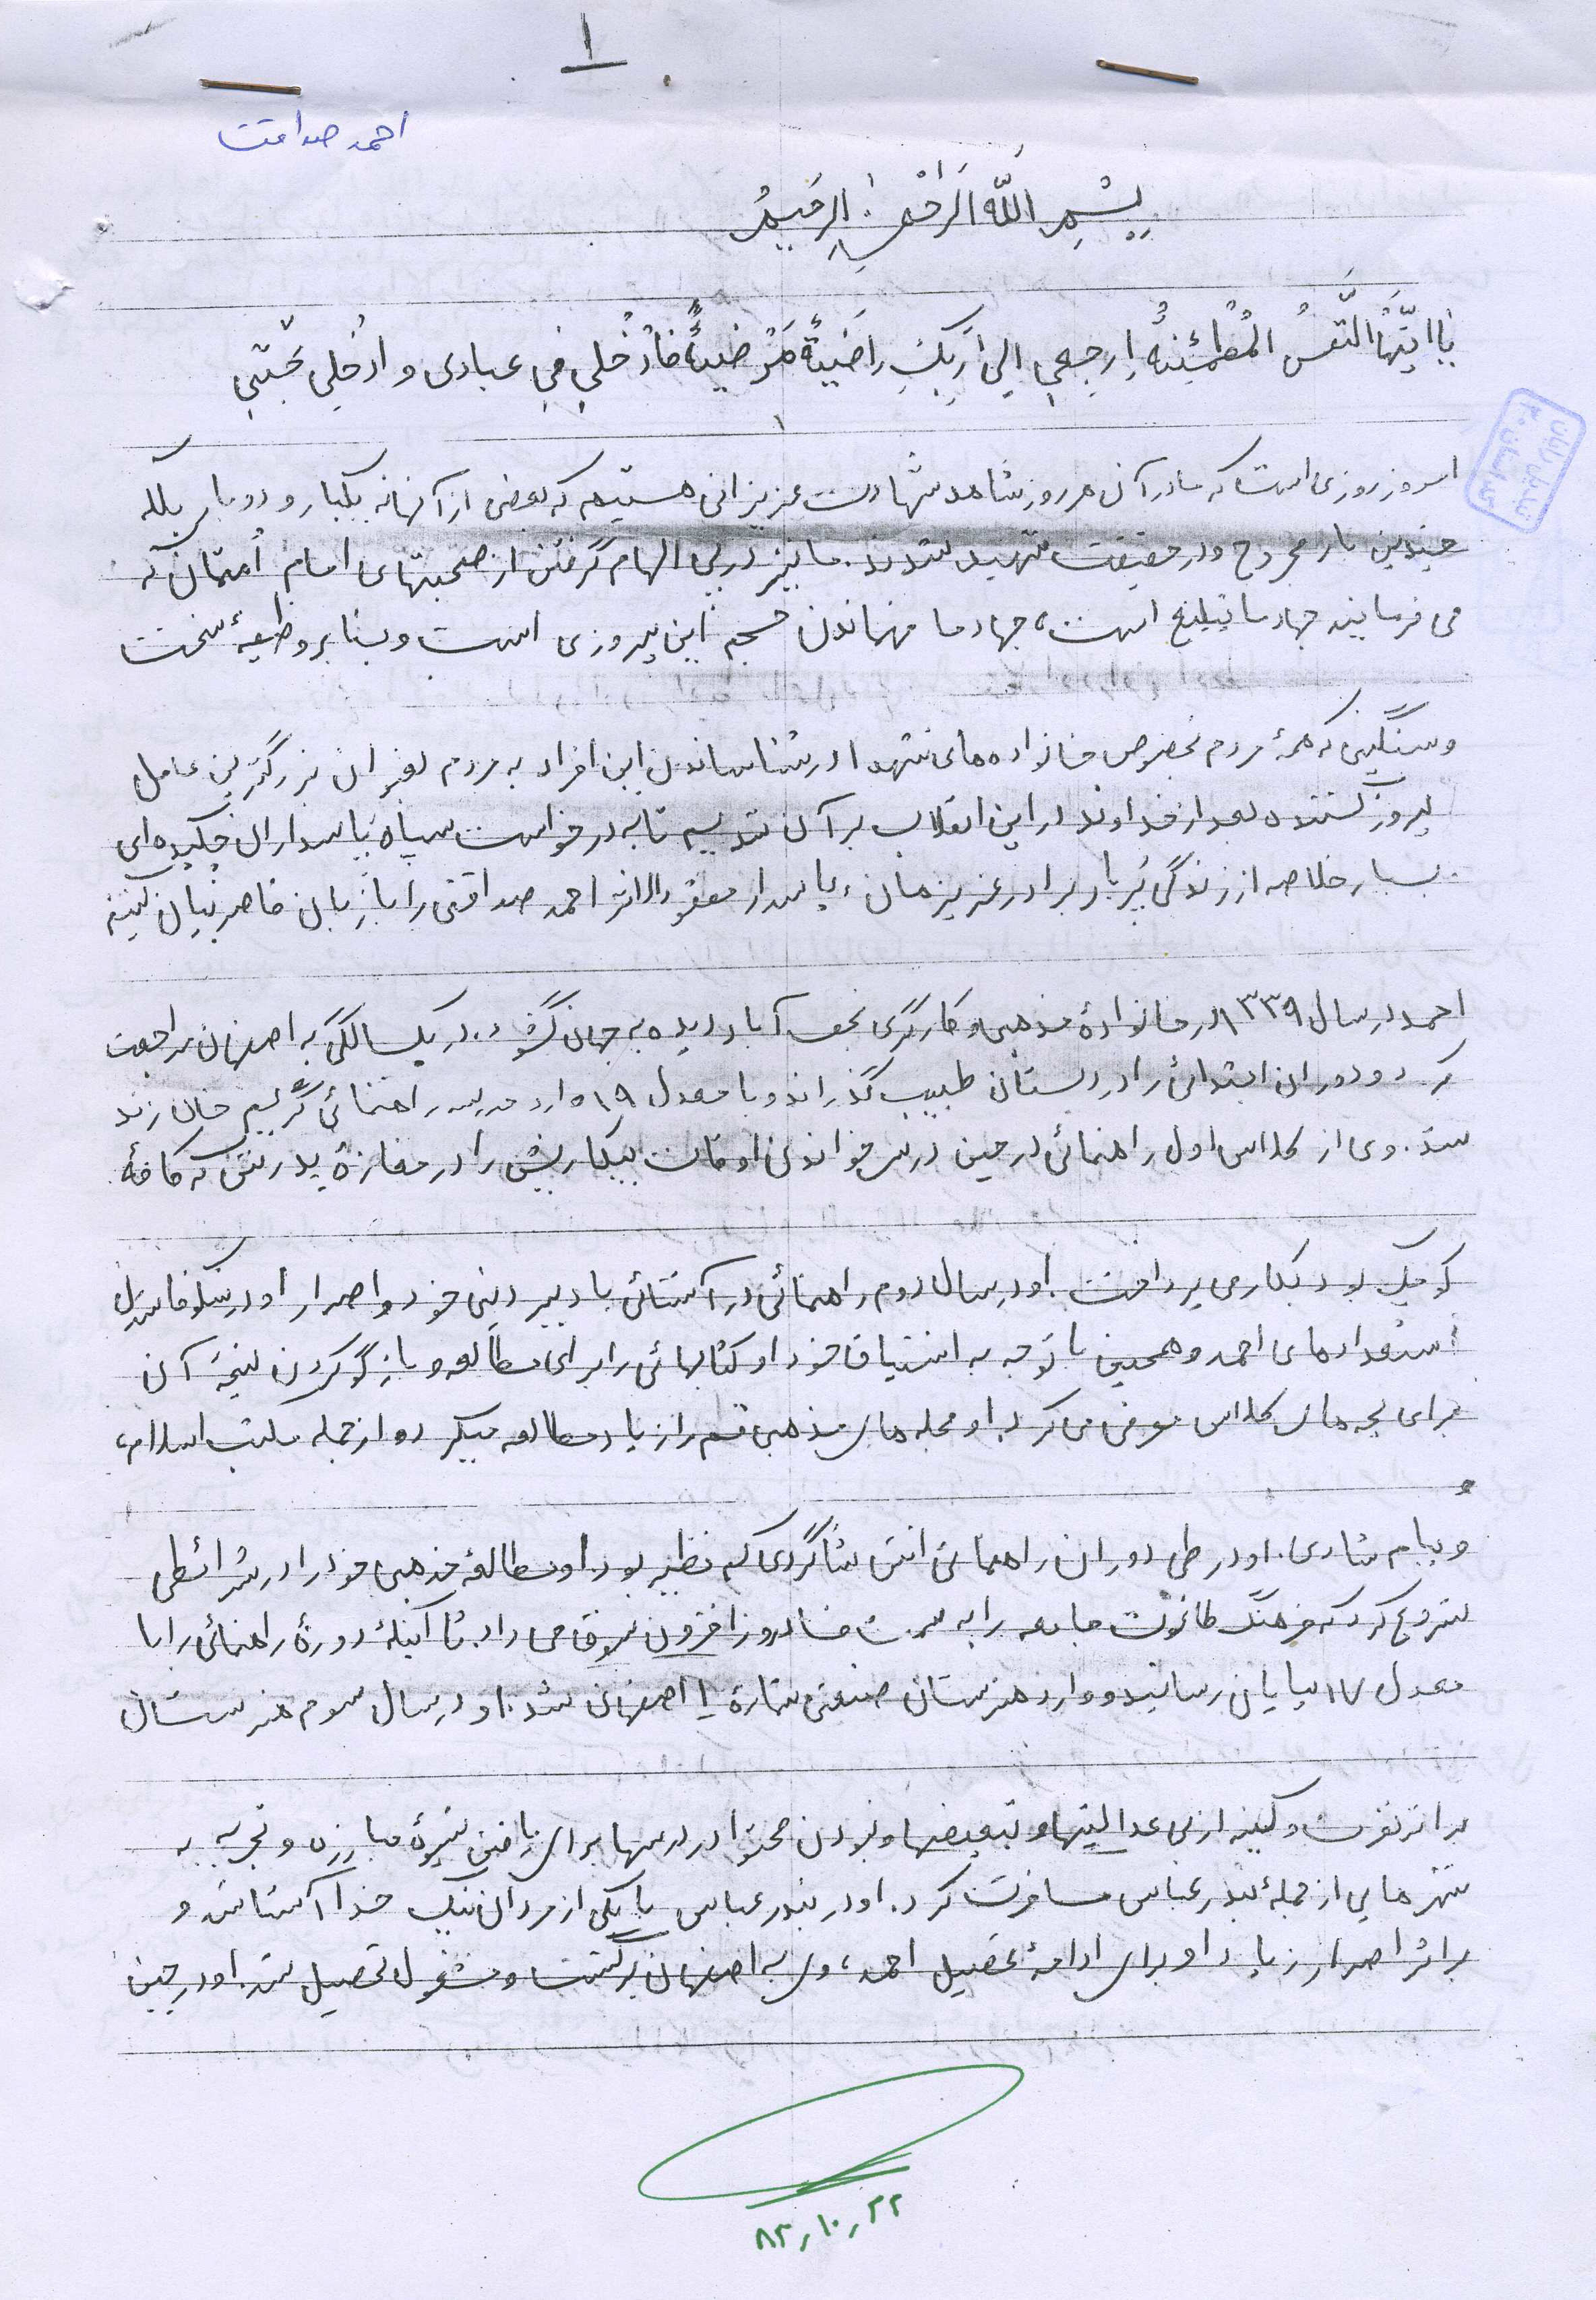 ۱
احمد صداقت
بِسْمِ اَللّهِ اَلرَّحْمنِ الرَّحیمْ
یٰا اَیَّتُهَا النَّفْسُ الْمُطْمَئِنَّهُ اِرجِعی اِلیٰ رَبِّکِ راضِیَةً مَرْضِیَةً فَادْخُلی فی عبادی و ادْخُلی جَنَّتی
امروز روزی است که ما در آن هر روز شاهد شهادت عزیزانی هستیم که بعضی از آنها نه یکبار و دو بار بلکه
چندین بار مجروح و در حقیقت شهید شدند. ما نیز در پی الهام گرفتن از صحبتهای امام اُمتمان که
می فرمایند جهاد ما تبلیغ است، جهاد ما فهماندن حجم این پیروزی است و بنا بر وظیفهٔ سخت
و سنگینی که همهٔ مردم بخصوص خانواده های شهدا در شناساندن این افراد به مردم بعنوان بزرگترین عامل
پیروز کننده بعد از خداوند در این انقلاب بر آن شدیم تا به درخواست سپاه پاسداران چکیده ای
بسیار خلاصه از زندگی پُربار برادر عزیزمان، پاسدار مفقود الاثر احمد صداقتی را با زبان قاصر بیان کنیم
احمد در سال ۱۳۳۹ در خانوادهٔ مذهبی و کارگری نجف آباد دیده به جهان گشود. در یکسالگی به اصفهان مراجعت
کرد و دوران ابتدائی را در دبستان طبیب گذراند و با معدل ۱۹ وارد مدرسه راهنمائی کریم خان زند
شد. وی از کلاس اول راهنمائی در حین درس خواندن اوقات بیکاریش را در مغازهٔ پدرش که کافهٔ
کوچک بود بکار می پرداخت. او در سال دوم راهنمائی در آشنائی با دبیر دینی خود و اصرار او در شکوفا شدن
استعدادهای احمد و همچنین با توجه به اشتیاق خود او کتابهائی را برای مطالعه و بازگو کردن نتیجهٔ آن
برای بچه های کلاس معرفی می کرد. او مجله های مذهبی قم را زیاد مطالعه میکرد و از جمله مکتب اسلام،
و پیام شادی. او در طی دوران راهنمائی اش شاگردی کم نظیر بود. او مطالعهٔ مذهبی خود را در شرائطی
شروع کرد که فرهنگ طاغوت جامعه را به سمت فساد روز افزون سوق می داد. تا آنکه دورهٔ راهنمائی را با
معدل ۱۷ بپایان رسانید و وارد هنرستان صنعتی شمارهٔ ۱ اصفهان شد. او در سال سوم هنرستان
بر اثر نفرت و کینه از بی عدالتیها و تبعیضها و نبودن محتوا در درسها برای یافتن شیوهٔ مبارزه و تجربه به
شهرهایی از جملهٔ بندر عباس مسافرت کرد. او در بندر عباس با یکی از مردان نیک خدا آشنا شد و
بر اثر اصرار زیاد او برای ادامهٔ تحصیل احمد، وی به اصفهان برگشت و مشغول تحصیل شد. او در حین
۸۲,۱۰,۲۲